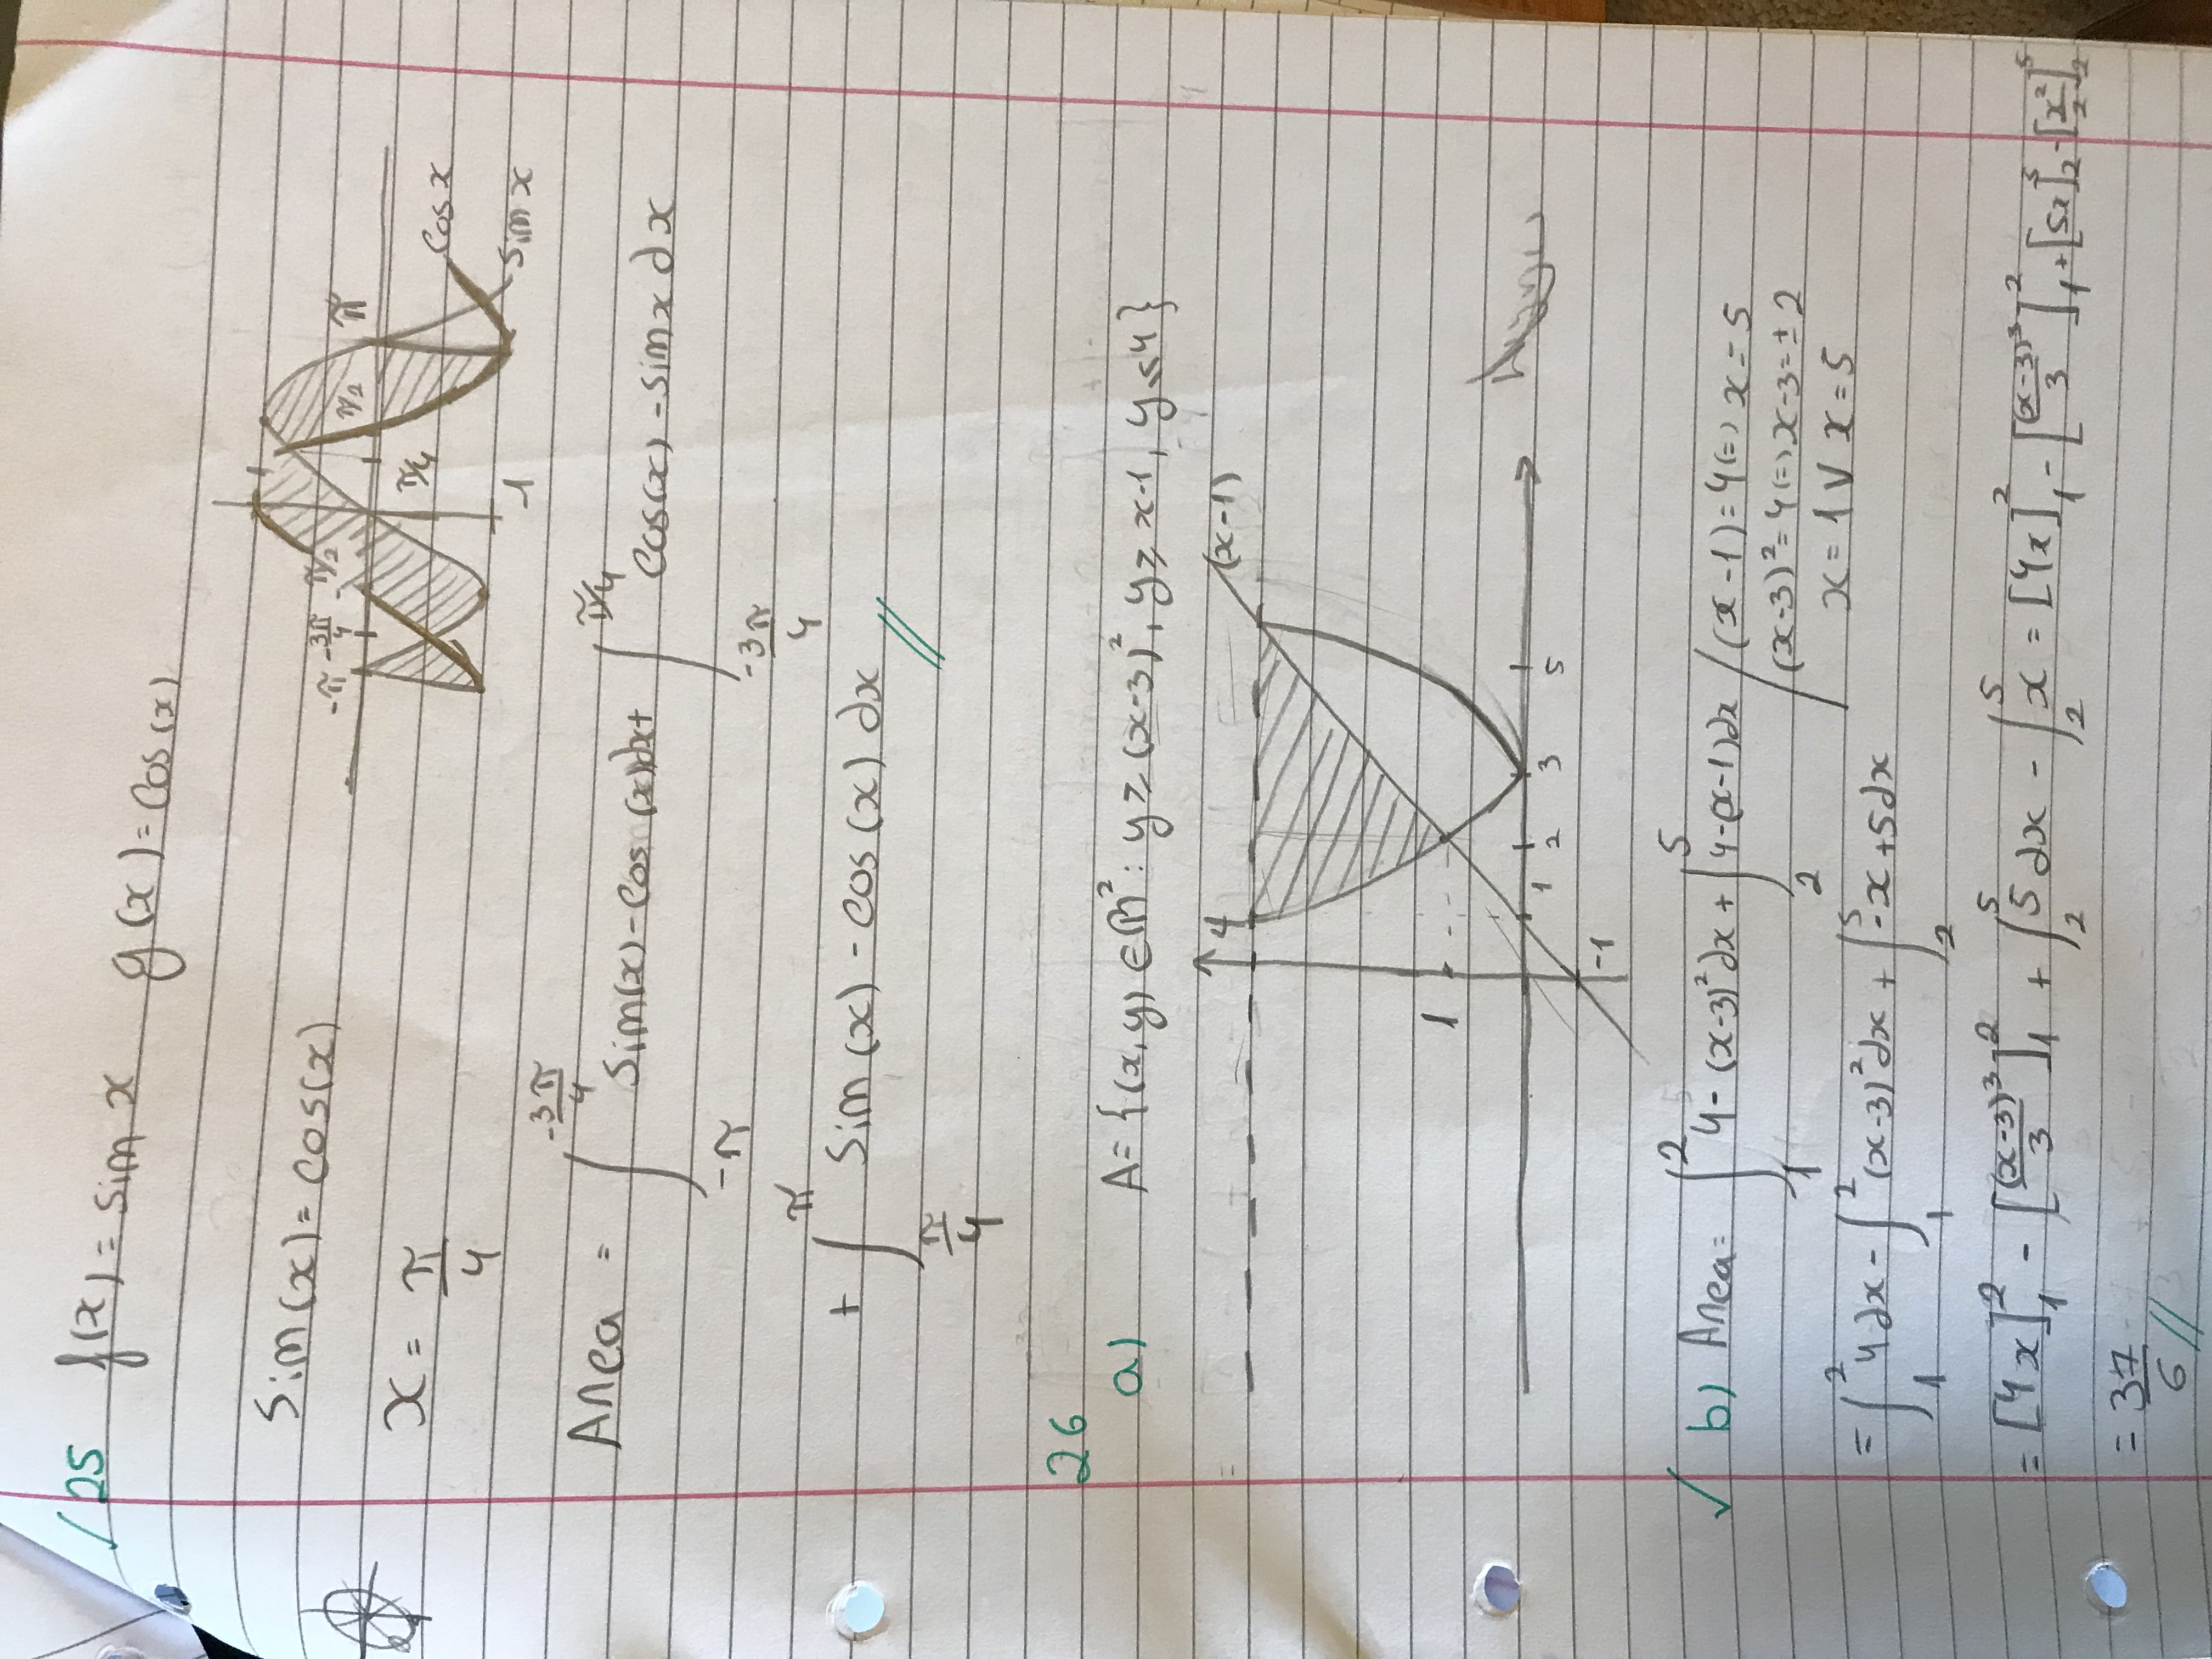 /25 f(x) = sin x g(x) = cos(x)
sin(x) = cos(x)
x = π/4
1
-π -3π/4 -π/2 π/4 π/2 π
cos x
sin x
-1
Area = ∫_{-π}^{-3π/4} sin(x) - cos(x)dx + ∫_{-3π/4}^{π/4} cos(x) - sin x dx
+ ∫_{π/4}^{π} sin(x) - cos(x) dx //
26
a) A = {(x,y) ∈ ℝ²: y ≥ (x-3)², y ≥ x-1, y ≤ 4}
4 (x-1)
1
1 2 3 5
-1
✓ b) Area = ∫_{1}^{2} 4 - (x-3)² dx + ∫_{2}^{5} 4-(x-1)dx / (x-1) = 4 (=) x = 5
(x-3)² = 4 (=) x-3 = ± 2
x = 1 V x = 5
= ∫_{1}^{2} 4 dx - ∫_{1}^{2} (x-3)² dx + ∫_{2}^{5} -x + 5 dx
= [4x]_{1}^{2} - [(x-3)³/3]_{1}^{2} + ∫_{2}^{5} 5 dx - ∫_{2}^{5} x = [4x]_{1}^{2} - [(x-3)³/3]_{1}^{2} + [5x]_{2}^{5} - [x²/2]_{2}^{5}
= 37/6 //